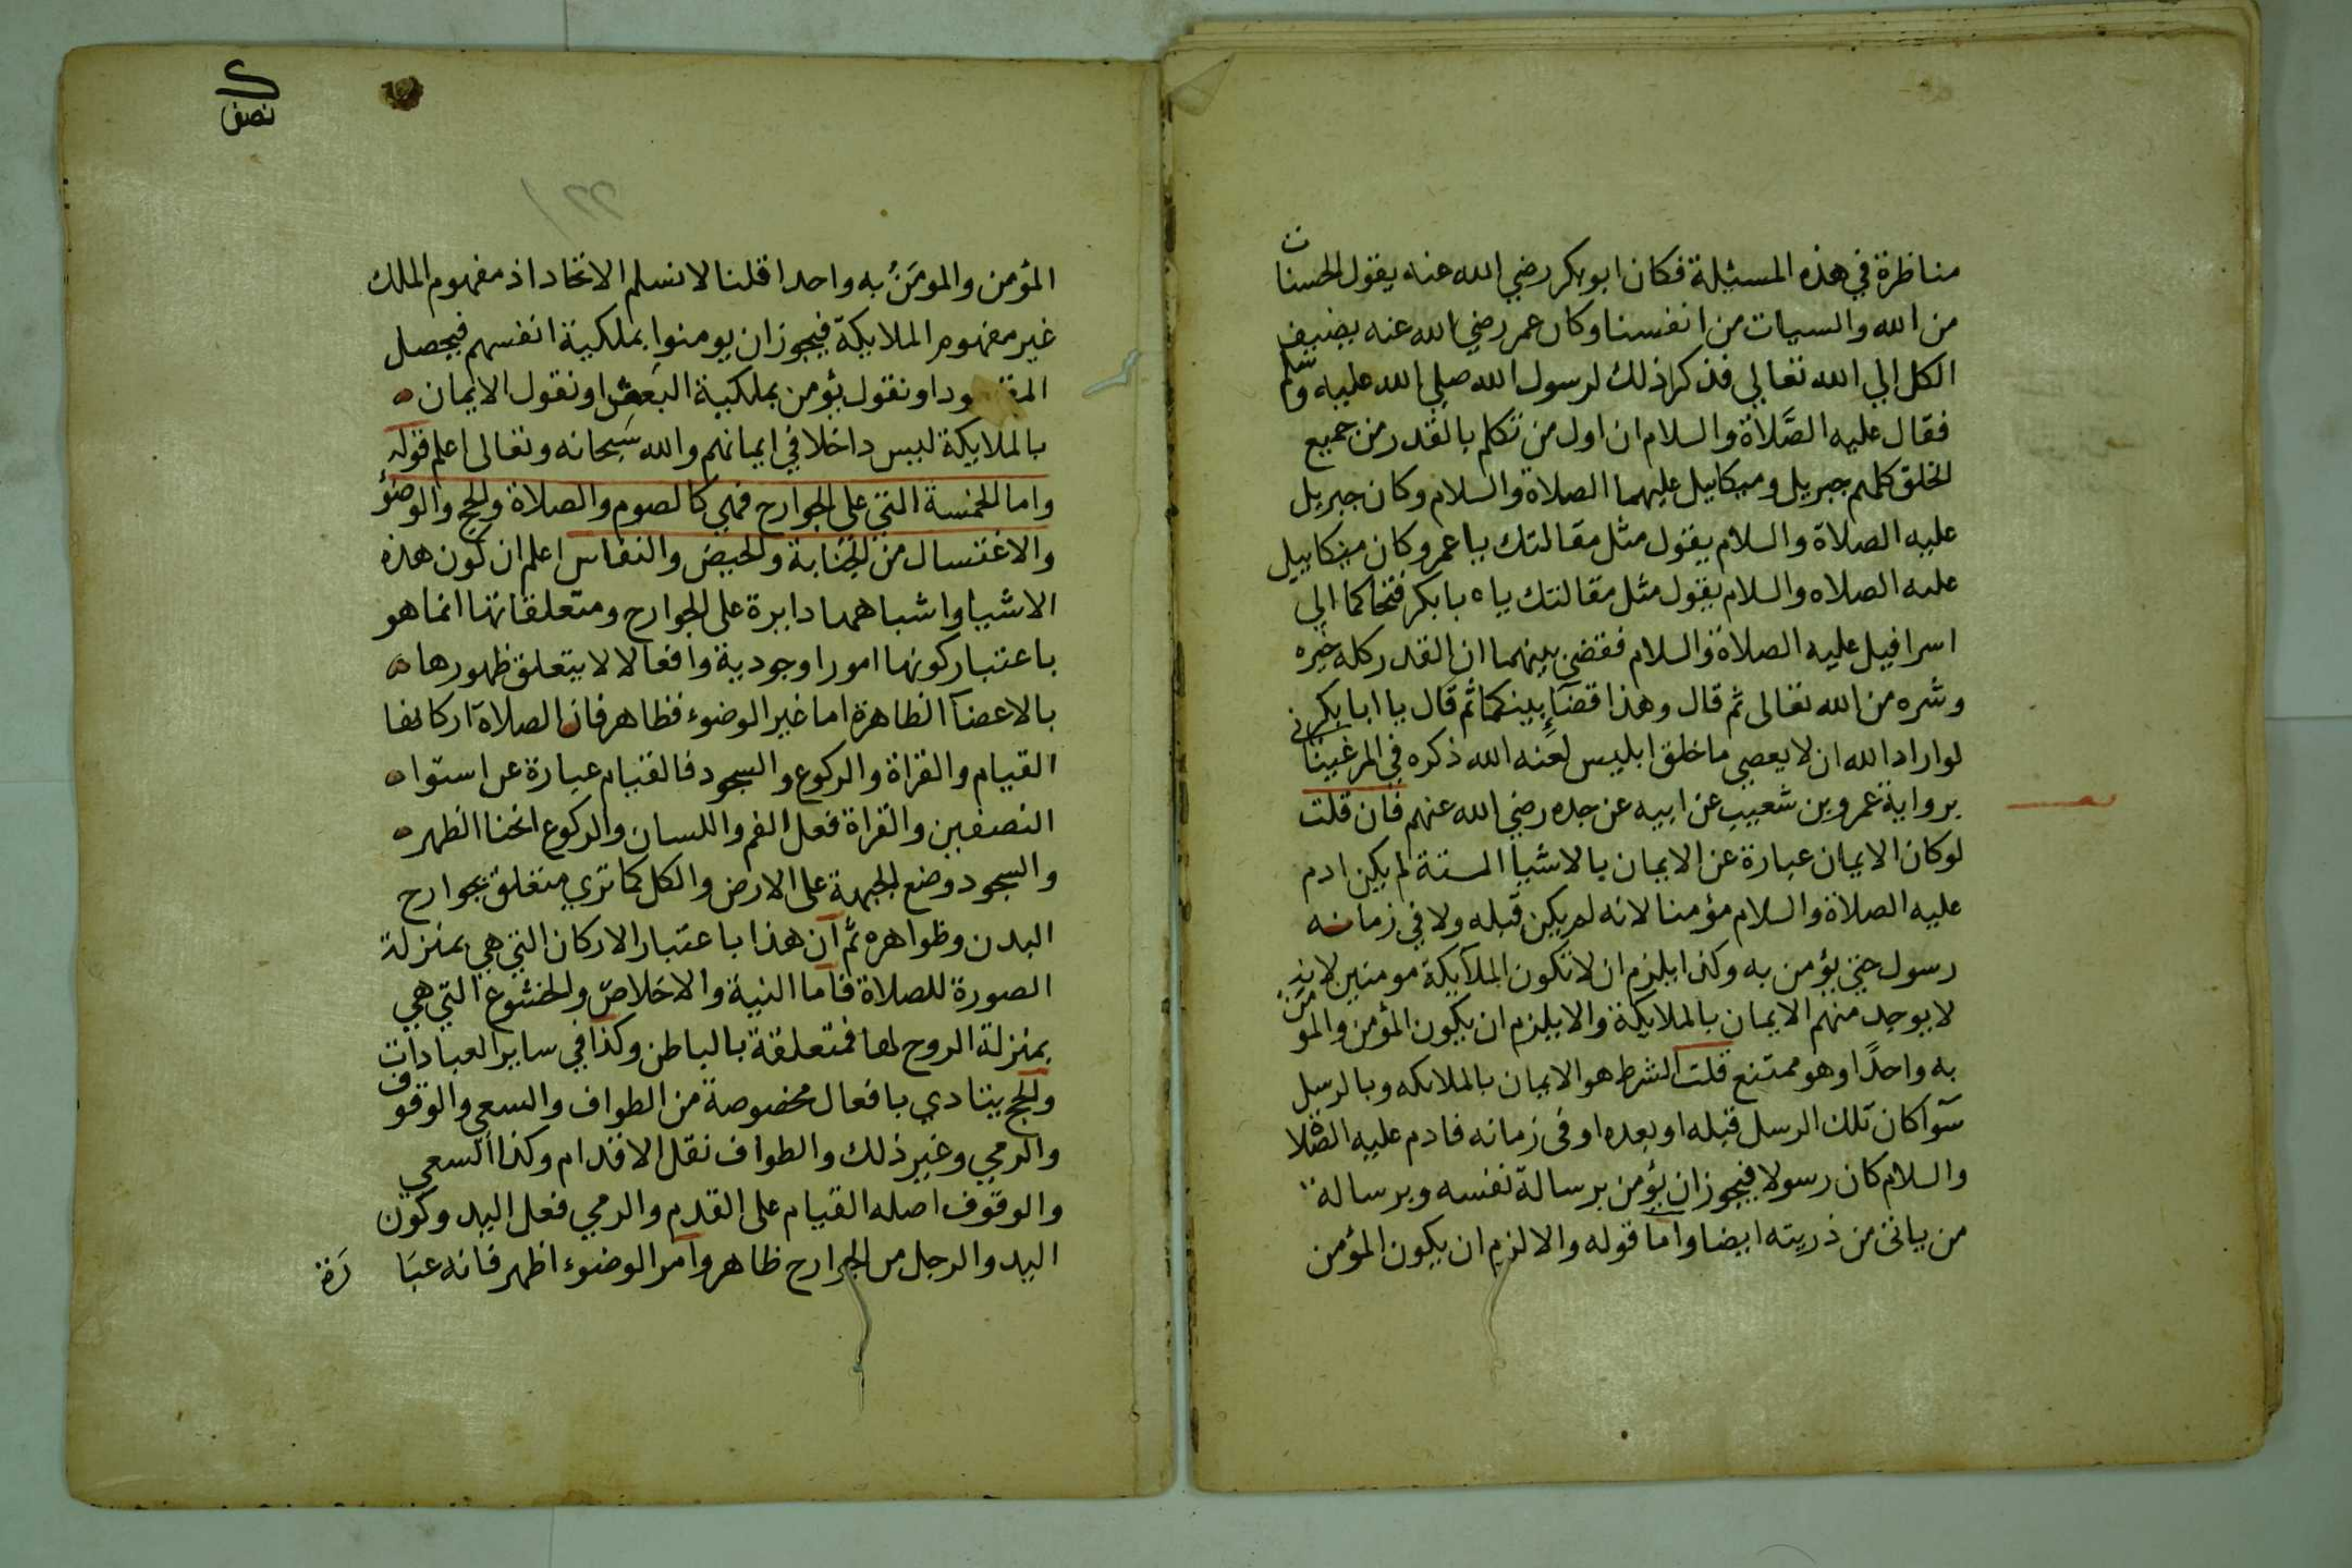 مناظرة في هذه المسئلة فكان ابو بكر رضي الله عنه يقول الحسنات
من الله والسيات من انفسنا وكان عمر رضي الله عنه يضيف
الكل الي الله تعالي فذكرا ذلك لرسول الله صلي الله عليه وسلم
فقال عليه الصَّلاة والسلام ان اول من تكلم بالقدر من جميع
الخلق كلهم جبريل وميكاييل عليهما الصلاة والسلام وكان جبريل
عليه الصلاة والسلام يقول مثل مقالتك يا عمر وكان ميكاييل
عليه الصلاه والسلام يقول مثل مقالتك يا ابا بكر فتحاكما الي
اسرافيل عليه الصلاة والسلام فقضي بينهما ان القدر كله خيره
وشره من الله تعالى ثم قال وهذا قضآءِ بينكما ثم قال يا ابا بكر
لو اراد الله ان لا يعصي ما خلق ابليس لعنه الله ذكره في المرغيناني
برواية عمرو بن شعيب عن ابيه عن جده رضي الله عنهم فان قلت
لو كان الايمان عبارة عن الايمان بالاشيا الستة لم يكن ادم
عليه الصلاة والسلام مؤمنا لانه لم يكن قبله ولا في زمانه
رسول حتي يؤمن به وكذا يلزم ان لا تكون الملآيكة مومنين لانه
لا يوجد منهم الايمان بالملايكة والا يلزم ان يكون المؤمن والمومَن
به واحدًا وهو ممتنع قلت الشرط هو الايمان بالملائكه وبالرسل
سَوآ كان تلك الرسل قبله او بعده او في زمانه فادم عليه الصلاة
والسلام كان رسولا فيجوز ان يؤمن برسالة نفسه وبرسالة
من ياتى من ذريته ايضا واما قوله والا لزم ان يكون المؤمن
نصف
المؤمن والمومَنُ به واحدا قلنا لا نسلم الاتحاد اذ مفهوم الملك
غير مفهوم الملايكة فيجوز ان يومنوا بملكية انفسهم فيحصل
او نقول يؤمن بملكية البعض او نقول الايمان
بالملايكة ليس داخلا في ايمانهم والله سَبحانه وتعالى اعلم قوله
واما الخمسة التي على الجوارح فهي كالصوم والصلاة والحج والوضوء
والاغتسال من الجنابة والحيض والنفاس اعلم ان كون هذه
الاشيا واشباهها دايرة على الجوارح ومتعلقاتها انما هو
باعتبار كونها امورا وجودية وافعالا لا يتعلق ظهورها
بالاعضآ الظاهرة اما غير الوضوء فظاهر فان الصلاة اركانها
القيام والقراة والركوع والسجود فالقيام عبارة عن استوا
النصفين والقراة فعل الفم واللسان والركوع انحنا الظهر
والسجود وضع الجبهة على الارض والكل كما تري متعلق بجوارح
البدن وظواهره ثم ان هذا باعتبار الاركان التي هي بمنزلة
الصورة للصلاة فاما النية والاخلاص والخشوع التي هي
بمنزلة الروح لها فمتعلقة بالباطن وكذا في ساير العبادات
والحج يتادي بافعال مخصوصة من الطواف والسعي والوقوف
والرمي وغير ذلك والطواف نقل الاقدام وكذا السعي
والوقوف اصله القيام على القدم والرمي فعل اليد وكون
اليد والرجل من الجوارح ظاهر وامر الوضوء اظهر فانه عبَا رَة